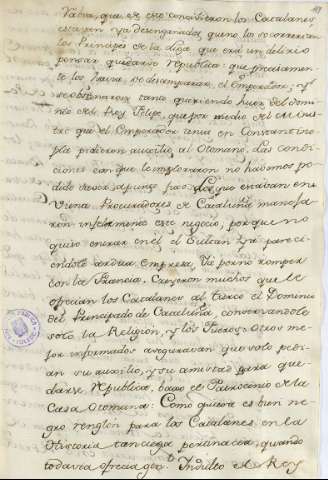 Vabia, que si esto consistieron los Catalanes
estavan ya desengañados, que no los socorrerian
los Principes de la Liga que era un delirio
pensar quedarse republica: que precisamente
los havia de desamparar el Emperador; y
se obstinaron tanto queriendo huir del domi
nio del Rey Felipe, que por medio del Minis
tro que el Emperador tenia en Constantino
pla pidieron auxilio al Otomano. Las condi
ciones con que le imploraron no hàvemos po
dido saver aפunque los que estavan en
Viena Procuradores de Cataluña, maneja
ron infelizmente este negocio, por que no
quiso entrar en el el Sultan
ciendole ardua empresa, ni romper
con la Francia. Creyeron muchos que le
ofrecian los Catalanes al turco el Dominio
del Principado de Cataluña, conservandole
solo la Religion, y los Fueros; otros me
jor informados aseguravan que solo pedi
an su auxilio, y su amistad para que
darse Republica, baxo el Patrocinio de la
Casa Otomana: Como quiera es bien ne
gro renglon para los Catalanes, en la
Historia tan ciega pertinacia, quando
todavia ofrecia gen.l Indulto el Rey